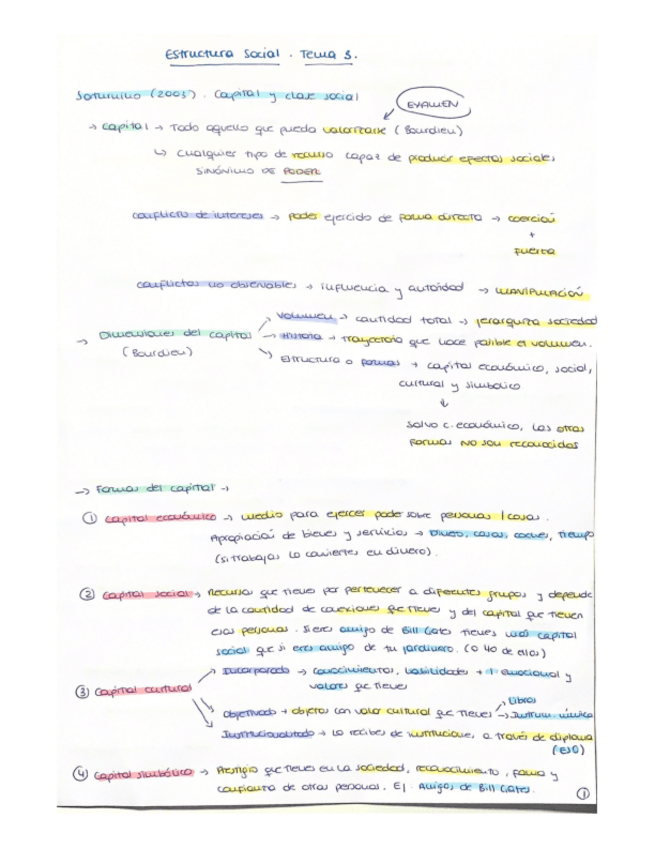 Estructura Social. Tema 3.
Saturnino (2003). Capital y clase social
EXAMEN
→ Capital → Todo aquello que pueda valorizarse (Bourdieu)
↳ Cualquier tipo de recurso capaz de producir efectos sociales,
SINÓNIMO DE PODER
conflicto de intereses → Poder ejercido de forma directa → coerción
+
fuerza
conflictos no observables → influencia y autoridad → MANIPULACIÓN
Volumen → cantidad total → jerarquiza sociedad
→ Dimensiones del capital → Historia → trayectoria que hace posible el volumen.
(Bourdieu)
Estructura o formas → capital económico, social,
cultural y simbólico
↓
salvo c. económico, las otras
formas NO son reconocidas
→ Formas del capital →
① Capital económico → medio para ejercer poder sobre personas / cosas.
Apropiación de bienes y servicios → Dinero, casas, coches, tiempo
(si trabajas lo conviertes en dinero).
② Capital social → Recursos que tienes por pertenecer a diferentes grupos y depende
de la cantidad de conexiones que tienes y del capital que tienen
esas personas. Si eres amigo de Bill Gates tienes más capital
social que si eres amigo de tu jardinero. (o 40 de ellos)
Incorporado → conocimientos, habilidades + I. emocional y
valores que tienes
③ Capital cultural
Libros
Objetivado → objetos con valor cultural que tienes → Instrum. música
Institucionalizado → lo recibes de instituciones, a través de diploma
(ESO)
④ Capital simbólico → Prestigio que tienes en la sociedad, reconocimiento, fama y
confianza de otras personas. Ej. Amigos de Bill Gates.
①